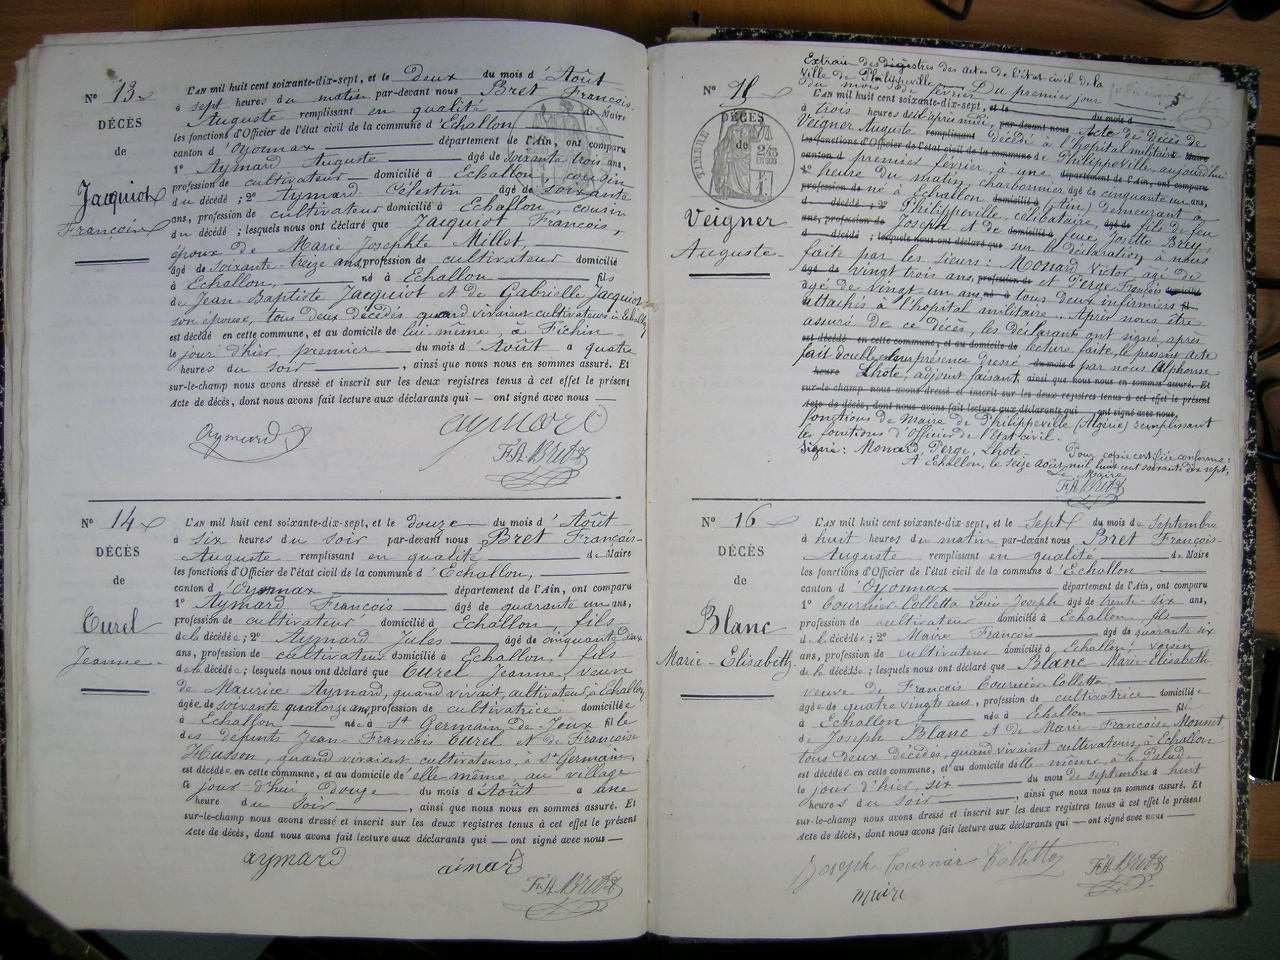 N° 13
DÉCÈS
de
Jacquiot
François
L'AN mil huit cent soixante-dix-sept, et le Deux du mois d'Août
à sept heures du matin par-devant nous Bret François-
Auguste remplissant en qualité de Maire
les fonctions d'Officier de l'état civil de la commune d'Echallon
canton d'Oyonnax département de l'Ain, ont comparu
1° Aymard Auguste âgé de soixante trois ans,
profession de cultivateur domicilié à Echallon cousin
du décédé ; 2° Aymard Célestin âgé de soixante
ans, profession de cultivateur domicilié à Echallon, cousin
du décédé ; lesquels nous ont déclaré que Jacquiot François,
époux de Marie Josephte Millot,
âgé de soixante-treize ans, profession de cultivateur domicilié
à Echallon, né à Echallon fils
de Jean-Baptiste Jacquiot et de Gabrielle Jacquiot
son épouse, tous deux décédés quand vivaient cultivateurs à Echallon
est décédé en cette commune, et au domicile de lui-même, à
le jour d'hier, premier du mois d'Août a quatre
heures du soir, ainsi que nous nous en sommes assuré. Et
sur-le-champ nous avons dressé et inscrit sur les deux registres tenus à cet effet le présent
Acte de décès, dont nous avons fait lecture aux déclarants qui — ont signé avec nous —
Aymard
aymard
F. A. Bret
N° 14
DÉCÈS
de
Turel
Jeanne
L'AN mil huit cent soixante-dix-sept, et le douze du mois d'Août
à six heures du soir par-devant nous Bret François-
Auguste remplissant en qualité de Maire
les fonctions d'Officier de l'état civil de la commune d'Echallon,
canton d'Oyonnax département de l'Ain, ont comparu
1° Aymard François âgé de quarante un ans,
profession de cultivateur domicilié à Echallon, fils
de la décédée ; 2° Aymard Jules âgé de cinquante deux
ans, profession de cultivateur domicilié à Echallon, fils
de la décédée ; lesquels nous ont déclaré que Turel Jeanne, veuve
de Maurice Aymard, quand vivait, cultivateur, à Echallon,
âgée de soixante quatorze ans, profession de cultivatrice domiciliée
à Echallon née à St Germain de Joux fille
des défunts Jean-François Turel et de Françoise
Husson, quand vivaient cultivateurs, à St Germain,
est décédée en cette commune, et au domicile de elle même, au village
le jour d'hui douze du mois d'Août à une
heure du soir, ainsi que nous nous en sommes assuré. Et
sur-le-champ nous avons dressé et inscrit sur les deux registres tenus à cet effet le présent
Acte de décès, dont nous avons fait lecture aux déclarants qui — ont signé avec nous —
aymard
aimar
F. A. Bret
N° 15
DÉCÈS
de
TIMBRE
Veigner
Auguste
Extrait des registres des actes de l'état civil de la
Ville de Philippeville Du premier jour
du mois de février
L'AN mil huit cent soixante-dix-sept, et le du mois d
à trois heures de l'après midi par-devant nous Acte de décès de
Veigner Auguste remplissant décédé à l'hopital militaire
les fonctions d'Officier de l'état civil de la commune de Philippeville, aujourd'hui
canton d premier février à une département de l'Ain, ont comparu
1° heure du matin, charbonnier âgé de cinquante un ans,
profession de né à Echallon domicilié à (Ain) demeurant à
d décédé ; 2° Philippeville, célibataire, âgé de fils de feu
ans, profession de Joseph et de domicilié à feue Josette Brey,
d décédé ; lesquels nous ont déclaré que sur la déclaration à nous
faite par les sieurs : Monard Victor, âgé de
âgé de vingt trois ans, profession de et Perge François domicilié
âgé de vingt un ans, né à tous deux infirmiers
attachés à l'hôpital militaire. Après nous être
assuré de ce décès, les déclarants ont signé, après
est décédé en cette commune, et au domicile de lecture faite, le présent acte
fait double en leur présence du mois d par nous Alphonse
heure Lhote, adjoint faisant, ainsi que nous nous en sommes assuré. Et
sur-le-champ nous avons dressé et inscrit sur les deux registres tenus à cet effet le présent
Acte de décès, dont nous avons fait lecture aux déclarants qui ont signé avec nous,
fonctions de Maire de Philippeville (Algérie) remplissant
les fonctions d'Officier de l'état civil.
Signé : Monard, Perge, Lhote Pour copie certifiée conforme :
A Echallon, le seize août mil huit cent soixante dix sept,
Le Maire
F. A. Bret
N° 16
DÉCÈS
de
Blanc
Marie-Elisabeth
L'AN mil huit cent soixante-dix-sept, et le Sept du mois de Septembre
à huit heures du matin par-devant nous Bret François-
Auguste remplissant en qualité de Maire
les fonctions d'Officier de l'état civil de la commune d'Echallon
canton d'Oyonnax département de l'Ain, ont comparu
1° Tournier Colletta Louis Joseph âgé de trente-six ans,
profession de cultivateur domicilié à Echallon fils
de la décédée ; 2° Maire François âgé de quarante six
ans, profession de cultivateur domicilié à Echallon, voisin
de la décédée ; lesquels nous ont déclaré que Blanc Marie-Elisabeth
veuve de François Tournier-Colletta
âgée de quatre vingts ans, profession de cultivatrice domiciliée
à Echallon née à Echallon fille
de Joseph Blanc et de Marie-Françoise Monnet
tous deux décédés, quand vivaient cultivateurs à Echallon
est décédée en cette commune, et au domicile d'elle-même, à
le jour d'hier, six du mois de septembre à huit
heures du soir, ainsi que nous nous en sommes assuré. Et
sur-le-champ nous avons dressé et inscrit sur les deux registres tenus à cet effet le présent
Acte de décès, dont nous avons fait lecture aux déclarants qui — ont signé avec nous —
Joseph tournier Colletta
maire
F. A. Bret